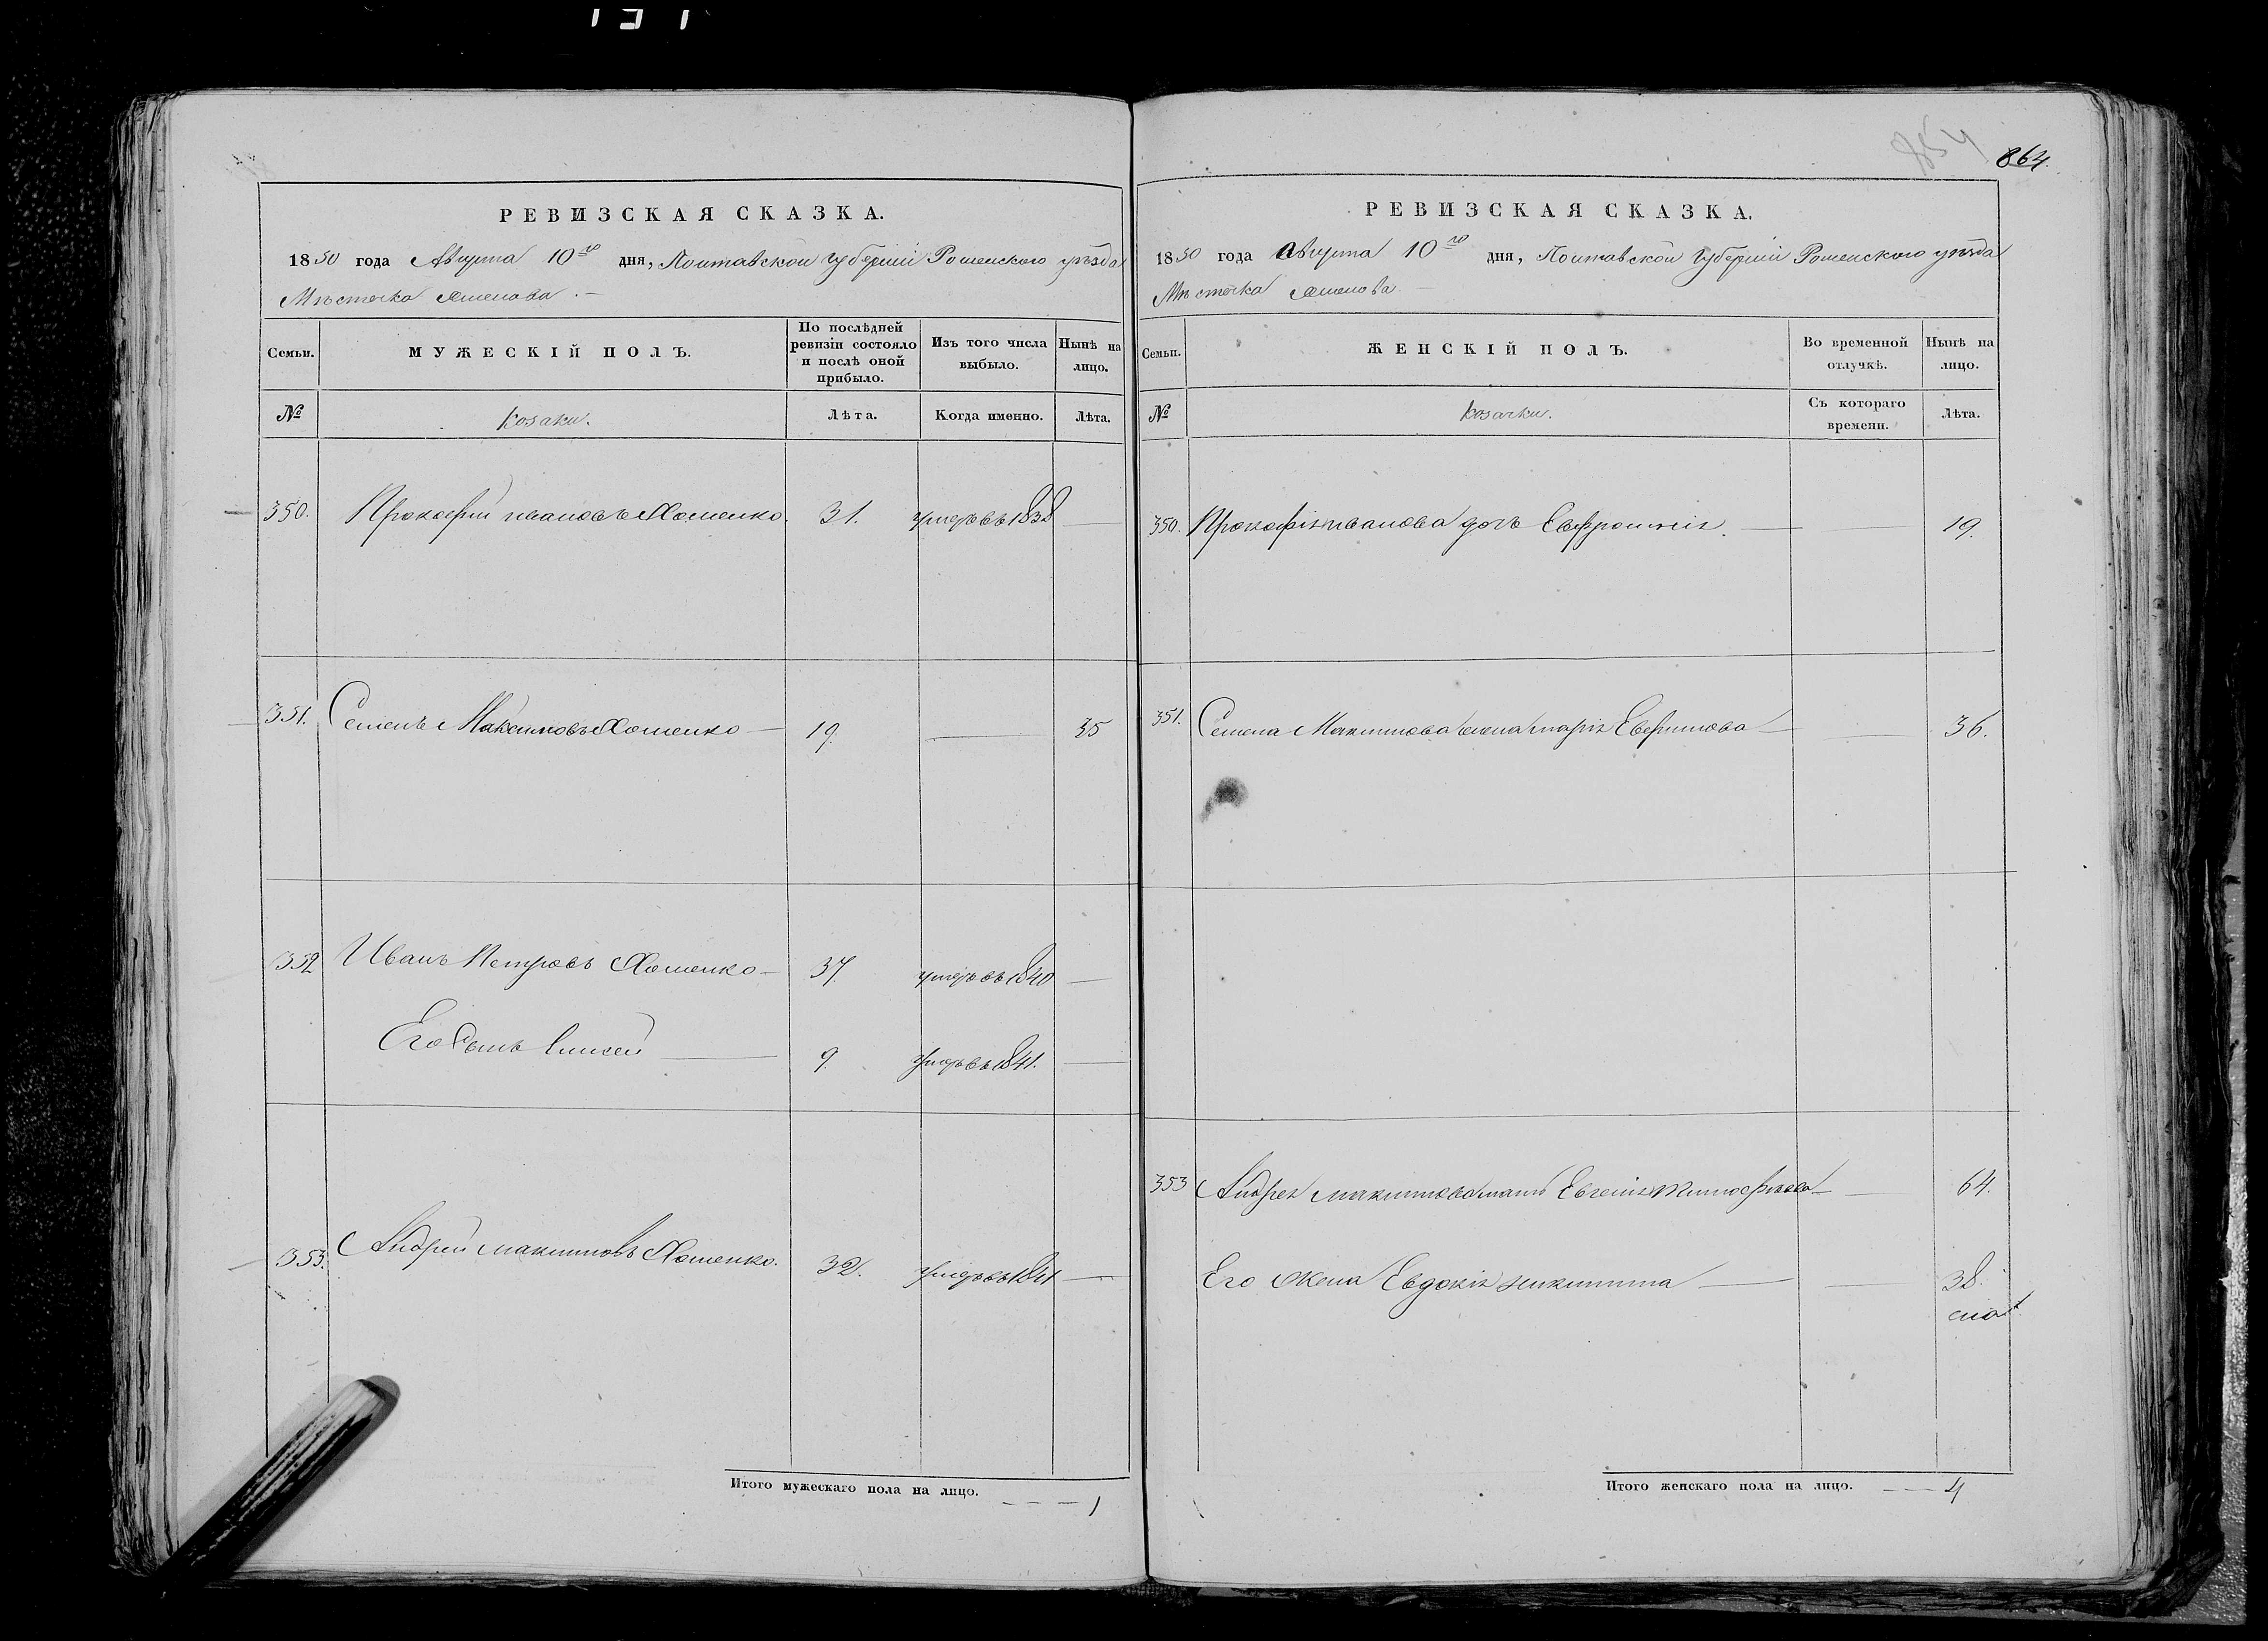 854
864.
РЕВИЗСКАЯ СКАЗКА.
1850 года Августа 10го дня, Полтавской Губерніи Роменского уѣзда
Мѣстечка
По послѣдней ревизіи состояло и послѣ оной прибыло.
Изъ того числа выбыло.
Нынѣ на лицо.
Семьи.
МУЖЕСКІЙ ПОЛЪ.
№
Козаки.
Лѣта.
Когда именно.
Лѣта.
350. Прокофій Ивановъ Хоменко. 31. умеръ въ 1838 —
351. Семенъ Максимовъ Хоменко — 19. — 35
352 Иванъ Петровъ Хоменко — 37. умеръ въ 1840 —
Его Сынъ — 9. умеръ въ 1841. —
353. Андрей Максимовъ Хоменко. 32. умеръ въ 1841 —
Итого мужескаго пола на лицо. — — — 1
РЕВИЗСКАЯ СКАЗКА.
1850 года Августа 10го дня, Полтавской Губерніи Роменского уѣзда
Мѣстечка
Семьи.
ЖЕНСКІЙ ПОЛЪ.
Во временной отлучкѣ.
Нынѣ на лицо.
№
Козачки.
Съ котораго времени.
Лѣта.
350. Прокофія Иванова дочь Евфросинія. — — 19.
351. Семена Максимова жена Марія — — 36.
353 Андрея Максимова мать Евгенія Тимофѣева — — 64.
Его Жена Евдокія Никитина — — 38.
Итого женскаго пола на лицо. — — 4